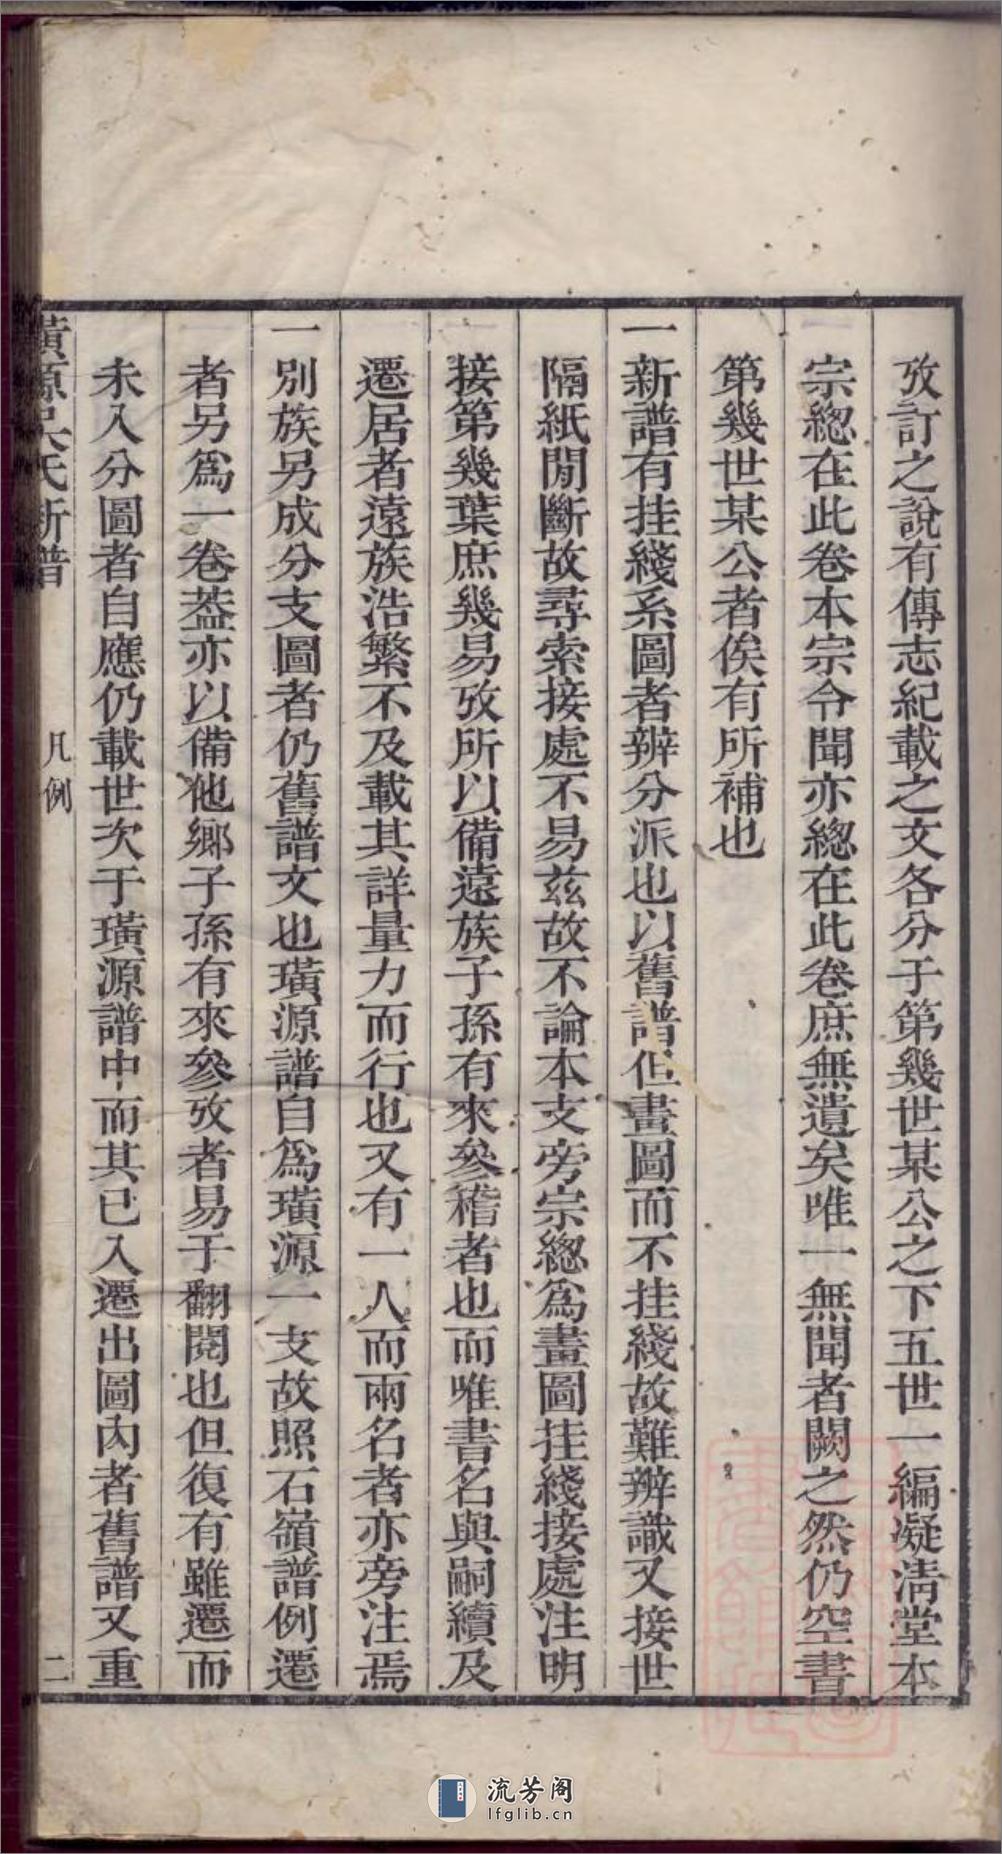 攷訂之說有傳志紀載之文各分于第幾世某公之下五世一編凝淸堂本
宗總在此卷本宗令聞亦總在此卷庶無遺矣唯一無聞者闕之然仍空書
第幾世某公者俟有所補也
一新譜有挂綫系圖者辨分派也以舊譜但畫圖而不挂綫故難辨識又接世
隔紙閒斷故尋索接處不易茲故不論本支旁宗總爲畫圖挂綫接處注明
接第幾葉庶幾易攷所以備遠族子孫有來參稽者也而唯書名與嗣續及
遷居者遠族浩繁不及載其詳量力而行也又有一人而兩名者亦旁注焉
一別族另成分支圖者仍舊譜文也璜源譜自爲璜源一支故照石嶺譜例遷
者另爲一卷葢亦以備他鄉子孫有來參攷者易于翻閱也但復有雖遷而
未入分圖者自應仍載世次于璜源譜中而其已入遷出圖內者舊譜又重
璜源吳氏新譜
凡例
二
流芳阁
lfglib.cn